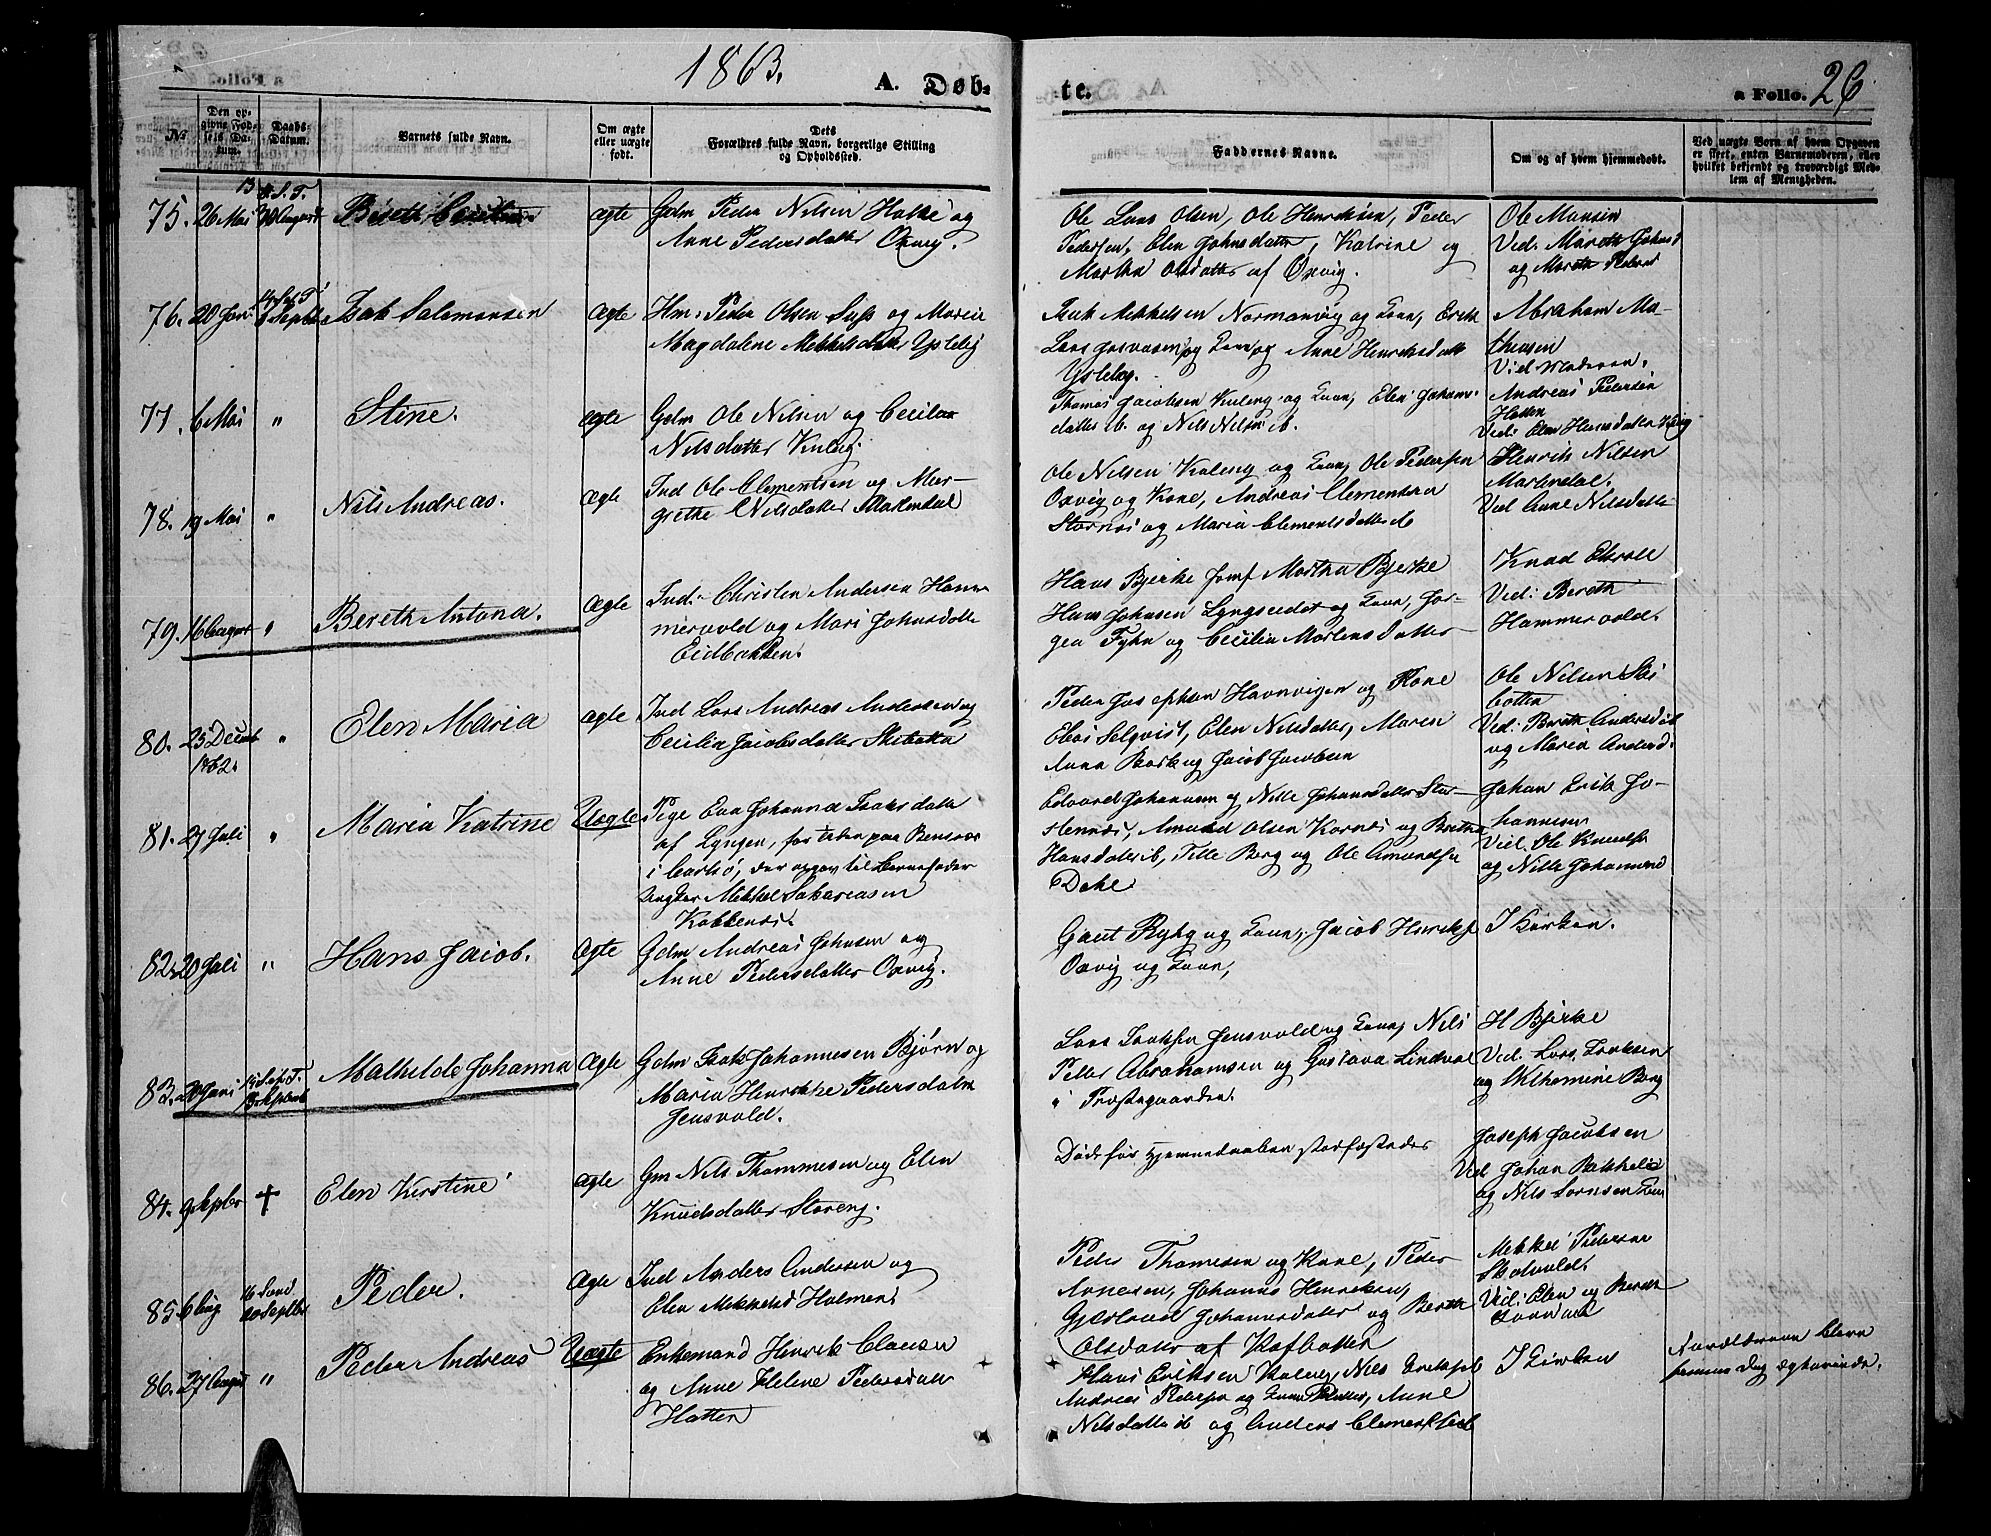 1863.
A. Døb-
te.
a Folio. 26
No
Den op-
givne Fød-
sels Da-
tum.
Daabs-
Datum.
Barnets fulde Navn.
Om ægte
eller uægte
født.
Dets
Forældres fulde Navn, borgerlige Stilling
og Opholdssted.
Faddernes Navne.
Om og af hvem hjemmedøbt.
Ved uægte Børn af hvem Opgaven
er skeet, enten Barnemoderen, eller
hvilket bekjendt og troværdigt Med-
lem af Menigheden.
75. 26 Mai 30 August Bereth ægte Gdm Peder Nilsen Hatte og
Anne Pedersdatter Oxvig.
Ole Lars Olsen, Ole Henriksen, Peder
Pedersen, Elen Johnsdatter, Katrine og
Martha Olsdatter af Oxvig.
Ole Monsen
Ved: Mareth Johns
og Mareth
76. 20 Juni 6 Septbr Isak Salomonsen Ægte Hm: Peder Olsen og Maria
Magdalene Mekkelsdatter Ysteby
Isak Mekkelsen Normanvig og Kone, Erik
Lars og Kone og Anne Henriksdatt
Ysteby.
Abraham Ma-
thesen
Ved Moderen.
77. 6 Mai " Stine. ægte Gdm Ole Nilsen og Cecilia
Nilsdatter Kvalvig.
Thomas Jacobsen Kvalvig og Kone, Elen Johann
datter ib. og Nils Nilsen ib.
Andreas Pedersen
Hatten
Ved: Elen Hansdatter
78. 19 Mai " Nils Andreas. Ægte Ind Ole Clementsen og Mar-
grethe Nilsdatter
Ole Nilsen Kalvig og Kone, Ole Pedersen
Oxvig og Kone, Andreas Clementsen
Stornes og Maria Clementsdatter ib
Henrik Nilsen
Ved Anne Nilsdatte
79. 16 August " Bereth Antona. Ægte Ind: Christen Andersen Ham-
mervold og Mari Johnsdatte
Eidbakken.
Hans Bjerke Jomf Martha Bjerke
Hans Johnsen Lyngseidet og Kone, Jør-
gen Fyhn og Cecilia Mortensdatter
Knud Ekrole
Ved: Bereth
Hammervold.
80. 25 Decmb
1862. " Elen Maria ægte Ind Lars Andreas Andersen og
Cecilia Jacobsdatter Skibotn
Peder Josephsen Havnvigen og Kone
Selqvist, Elen Nilsdatter, Maren
Anna Bork og Jacob Jacobsen
Ole Nilsen Ski
botten
Ved: Bereth Andersdat
og Maria Andersd.
81. 27 Juli " Maria Katrine Uægte Pige Eva Johanna Isaksdatte
af Lyngen, for tiden paa
i Carlsø, der opgav til Barnefader
Ungkar Mekkel Sakariasen
Kobbenes.
Edvard Johannesen og Nille Johansdatter Stor-
stennes, Amund Olsen Kornes og Beretha
Hansdatter ib, Tille Berg og Ole Amundsen
Dale
Johan Erik Jo-
hannesen
Ved. Ole Knudsen
og Nille Johannesd
82. 20 Juli " Hans Jacob. Ægte Gdm Andreas Johnsen og
Anne Pedersdatter Oxvig.
Gaut Ryby og Kone, Jacob Henriks
Oxvig og Kone,
I Kirken.
83. 20 Juni Mathilde Johanna Ægte Gdm Isak Johannesen Bjørn og
Maria Henrikke Pedersdatter
Jensvold.
Lars Isaksen Jensvold og Kone, Nils
Peder Abrahamsen og Gustava Lindvol
i Præstegaarden.
H Bjerke
Ved: Lars Isaksen
og Wilhemine Berg
84. 9 Septbr + Elen Kirstine Ægte Gm Nils Thommesen og Elen
Knudsdatter Storeng.
Død før Hjemmedaaben stadfæstedes
Joseph Jacobsen
Ved Johan Bakkeli
og Nils Sørnsen
85. 6 Aug 16 Sønd
20 Septbr Peder. Ægte Ind Anders Andersen og
Elen Mekkelsd Holmen
Peder Thomesen og Kone, Peder
Arnesen, Johannes Henriksen,
Gjertrud Johannesdatter og Bereth
Olsdatter af
Mekkel Pedersen
Skotvold.
Ved: Elen og Bereth
86. 27 August " Peder Andreas Uægte Enkemand Henrik Clausen
og Anne Helene Pedersdatter
Hatten
Hans Eriksen Kalvig, Nils Erikssen
Andreas Pedersen og Kone Hatten, Anne
Nilsdatter ib og Anders Clements
I Kirken
Forældrene bleve
samme Dag ægteviede.